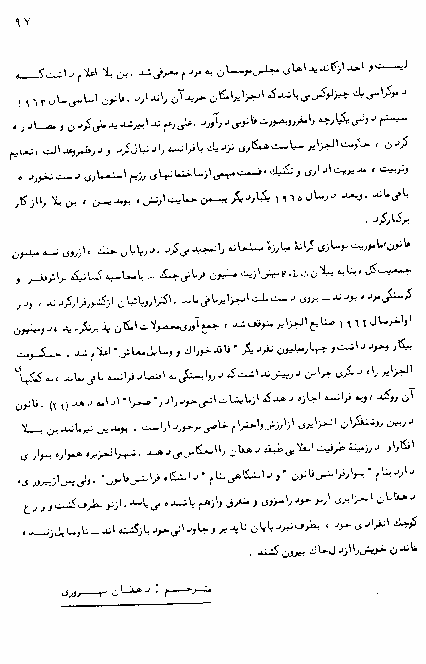 ۹۷
لیست واحد از کاندیداهای مجلس موسسان به مردم معرفی شد. بن بلا اعلام داشت کـه
دموکراسی یك چیز لوکس می باشد که الجزایر امکان خرید آن را ندارد. قانون اساسی سال ۱۹۶۳
سیستم دولتی یکپارچه را مقرر و بصورت قانونی درآورد. علی رغم تدابیر شدید ملی کردن و مصادره
کردن، حکومت الجزایر سیاست همکاری نزدیك با فرانسه را دنبال کرد و در قلمرو عدالت، تعلیم
وتربیت، مدیریت اداری و تکنیك، قسمت مهمی از ساختمانهای رژیم استعماری دست نخورده
باقی ماند. وبعد در سال ۱۹۶۵ یکبار دیگر به یمن حمایت ارتش، بومدین، بن بلا را از کار
برکنار کرد.
قانون مأموریت نوسازی گرانهٔ مبارزهٔ مسلحانه را تمجید می کرد. در پایان جنگ، از روی نه میلیون
جمعیت کل، بنا به بیش از یك میلیون قربانی جنگ ـ با محاسبه کسانیکه بر اثر فقر و
گرسنگی مرده بودند ـ بر روی دست ملت الجزایر باقی ماند. اکثر اروپائیان از کشور فرار کردند، ودر
اواخر سال ۱۹۶۲ صنایع الجزایر متوقف شد، جمع آوری محصولات امکان پذیر نگردید، دو میلیون
بیکار وجود داشت و چهار میلیون نفر دیگر "فاقد خوراك و وسایل معاش" اعلام شد. حکـومت
الجزایر راه دیگری جز این در پیش نداشت که در وابستگی به اقتصاد فرانسه باقی بماند، به کمکهای
آن رو کند، وبه فرانسه اجازه دهد که آزمایشات اتمی خود را در "صحرا" ادامه دهد (۲۱). قانون
در بین روشنفکران الجزایری از ارزش واحترام خاصی برخوردار است. بومدین نیز مانند بن بـلا
افکار او در زمینهٔ ظرفیت انقلابی طبقه دهقان را انعکاس می دهد. شهر الجزیره همواره بلواری
دارد بنام "بلوار فرانتس فانون" و دانشگاهی بنام "دانشگاه فرانتس فانون". ولی پس از پیروزی،
دهقانان الجزایری از نو خود را منزوی و متفرق و از هم پاشیده می یابند. از نو بطرف کشت و زرع
کوچك انفرادی خود، بطرف نبرد پایان ناپذیر و جاودانی خود بازگشته اند ـ تا وسایل زنـده
ماندن خویش را از دل خاك بیرون کشند.
مترجـم : دهقـان بهـروری